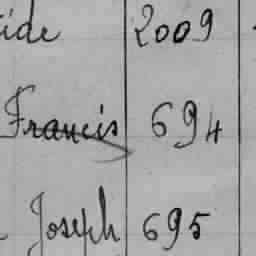 ide 2009
Francis 694
Joseph 695